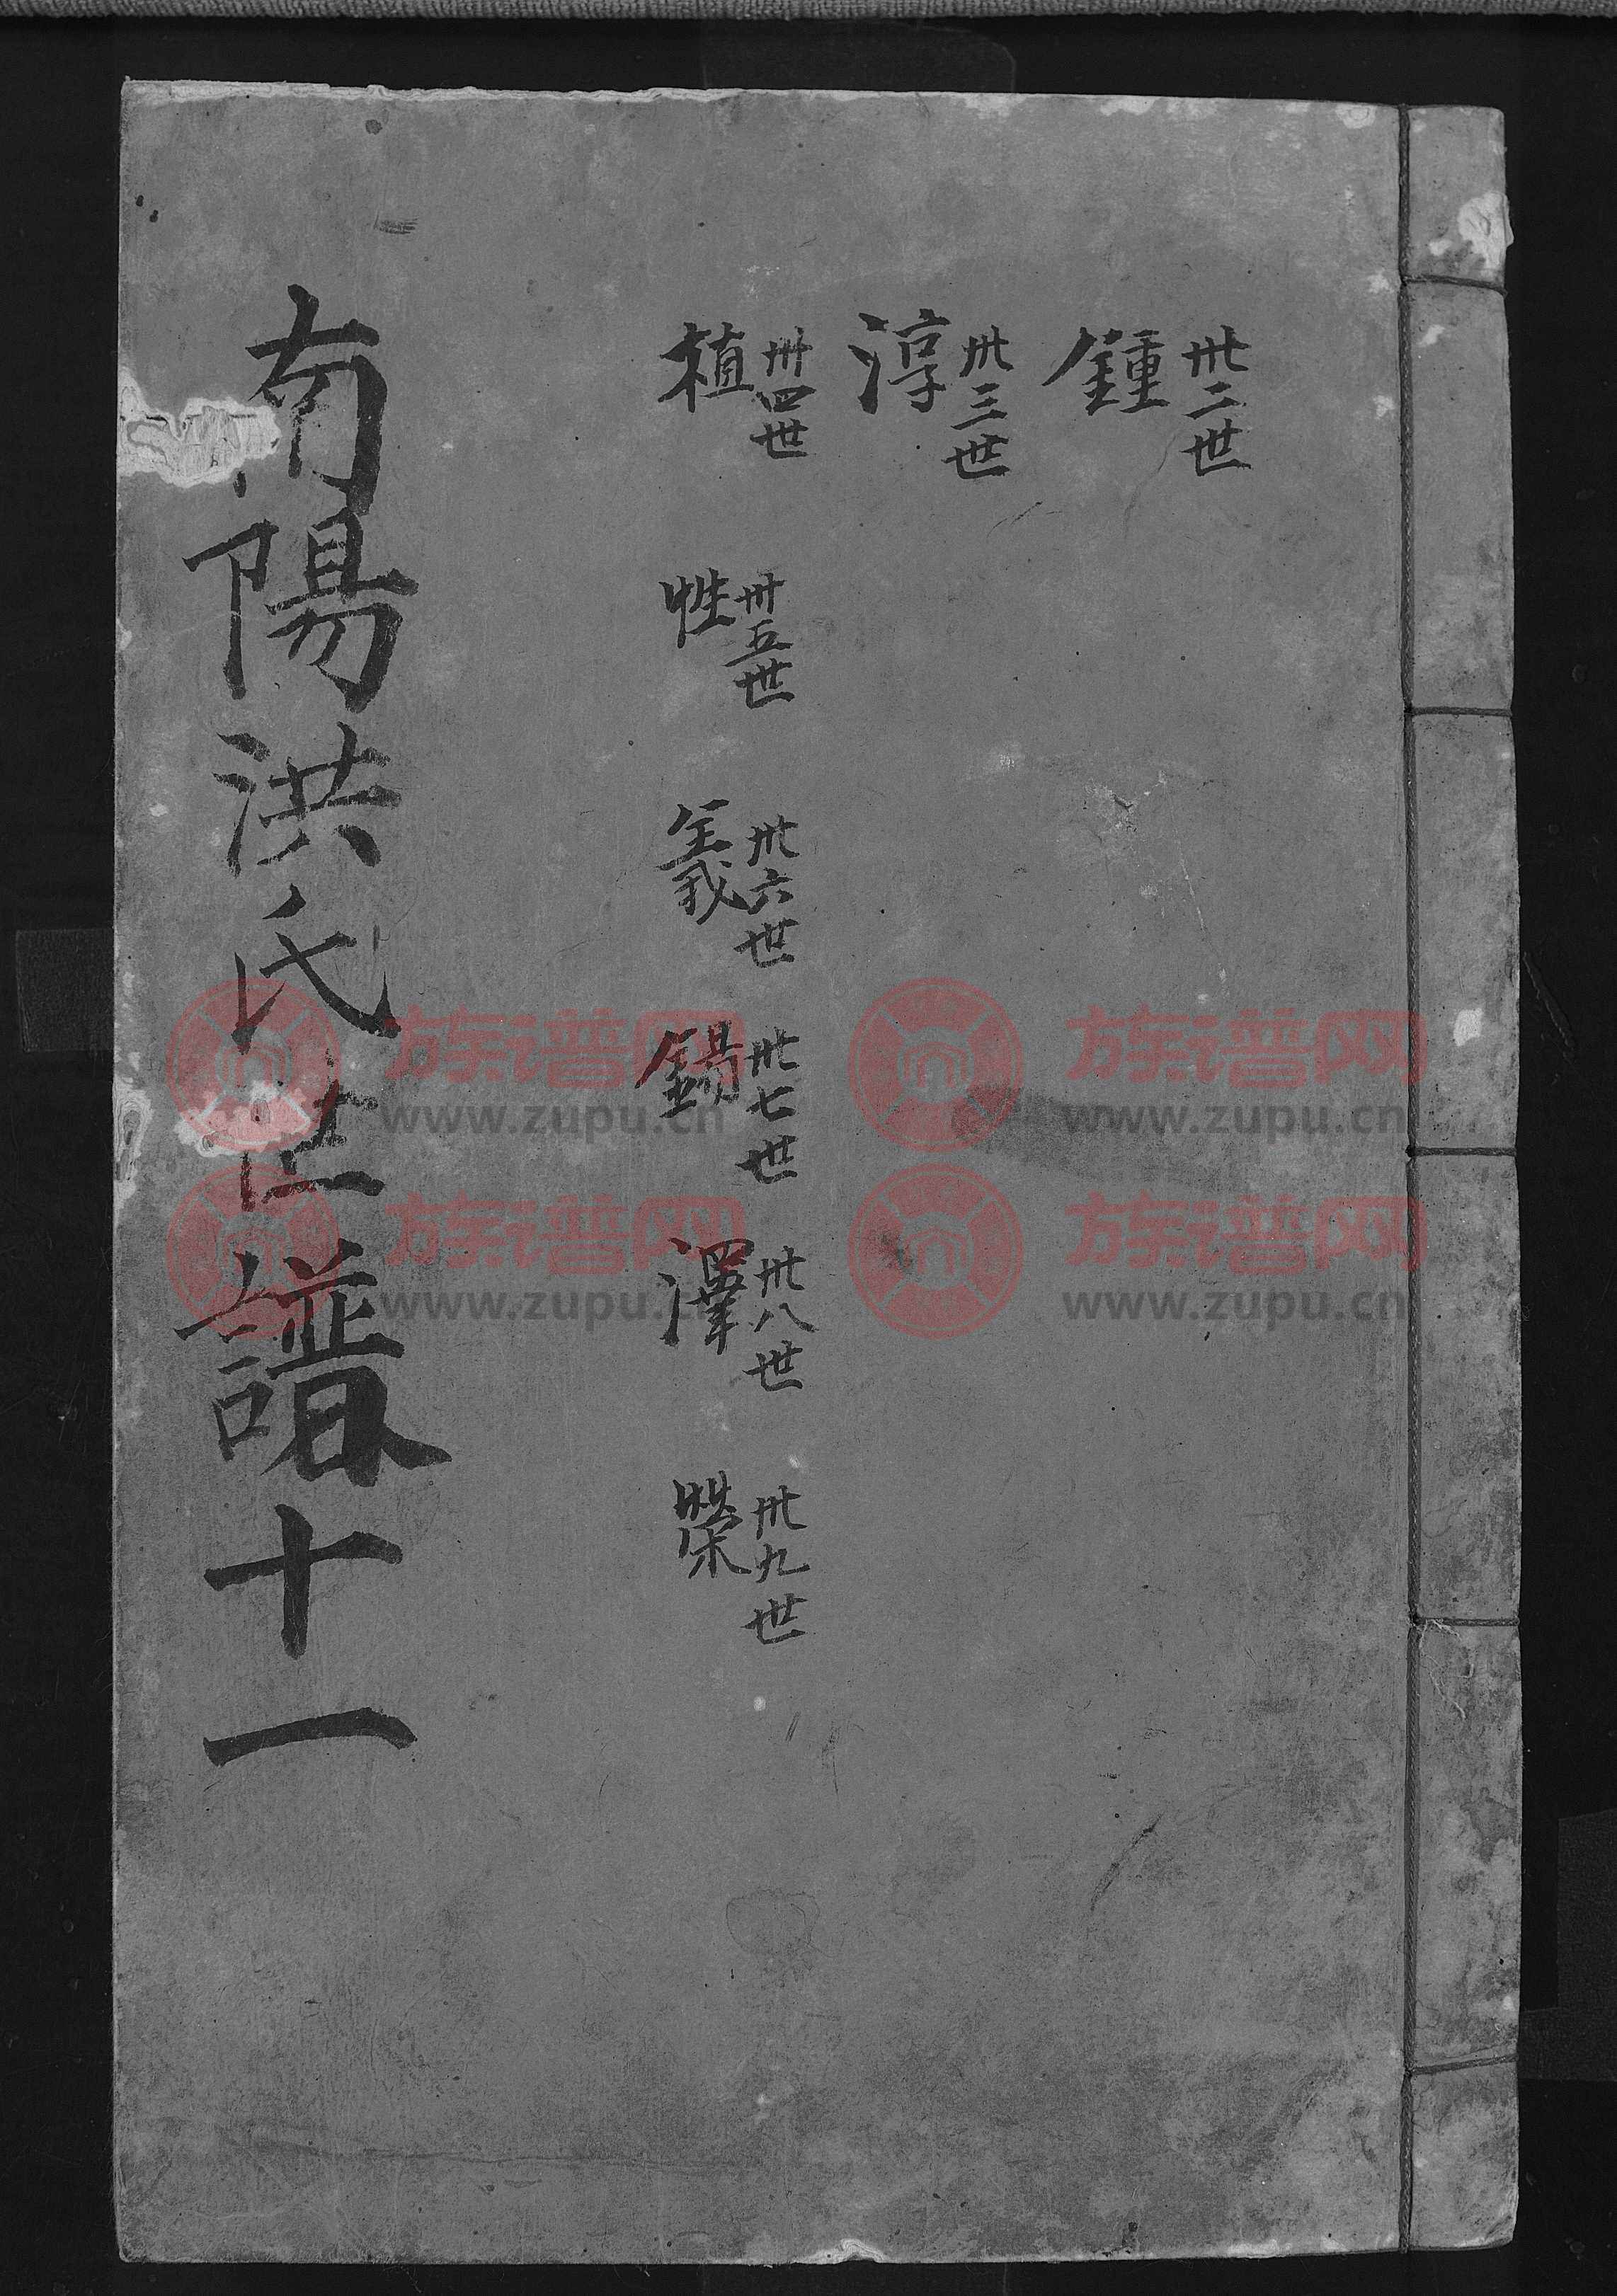 卅二世
鍾
卅三世
淳
卅四世
植
卅五世
卅六世
卅七世
錫
卅八世
澤
卅九世
榮
南陽洪氏世譜十一
族谱网
www.zupu.cn
族谱网
www.zupu.cn
族谱网
www.zupu.cn
族谱网
www.zupu.cn